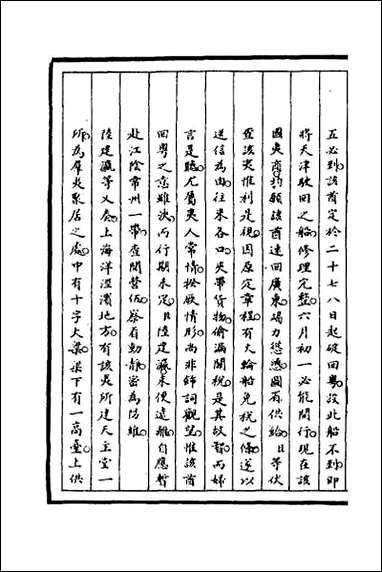 五必到該酋定於二十七八日起碇回粵設北船不到即
將天津駛回之船修理完整六月初一必能開行現在該
國夷商約願該酋速回廣東竭力慫慂圖有供給臣等伏
查該夷惟利是視因原定章程有火輪船免稅之條遂以
送信為由往來各口夾帶貨物偷漏關稅是其故智而婦
言是聽尤屬夷人常情揆厥情形尚非飾詞觀望惟該酋
回粵之意雖決而行期未定臣陸建瀛未便遠離自應暫
赴江陰常州一帶查閱營伍察看動靜密為防維
陸建瀛等又奏上海洋涇濱地方有該夷所建天主堂一
所為羣夷聚居之處中有十字大梁梁下有一高臺上供